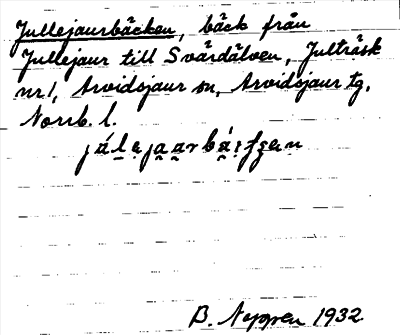 Jullejaurbäcken, bäck från
Jullejaur till Svärdälven, Julträsk
nr 1, Arvidsjaur sn, Arvidsjaur tg,
Norrb. l.
B. Nygren 1932